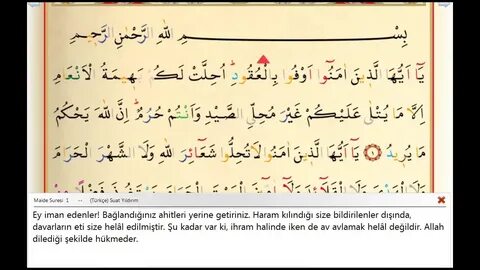 بِسْمِ اللّٰهِ الرَّحْمٰنِ الرَّح۪يمِ
يَٓا اَيُّهَا الَّذ۪ينَ اٰمَنُٓوا اَوْفُوا بِالْعُقُودِۜ اُحِلَّتْ لَكُمْ بَه۪يمَةُ الْاَنْعَامِ
اِلَّا مَا يُتْلٰى عَلَيْكُمْ غَيْرَ مُحِلِّي الصَّيْدِ وَاَنْتُمْ حُرُمٌۜ اِنَّ اللّٰهَ يَحْكُمُ
مَا يُر۪يدُ ﴿١﴾ يَٓا اَيُّهَا الَّذ۪ينَ اٰمَنُوا لَا تُحِلُّوا شَعَٓائِرَ اللّٰهِ وَلَا الشَّهْرَ الْحَرَامَ
Maide Suresi 1 -- (Türkçe) Suat Yıldırım
Ey iman edenler! Bağlandığınız ahitleri yerine getiriniz. Haram kılındığı size bildirilenler dışında,
davarların eti size helâl edilmiştir. Şu kadar var ki, ihram halinde iken de av avlamak helâl değildir. Allah
dilediği şekilde hükmeder.